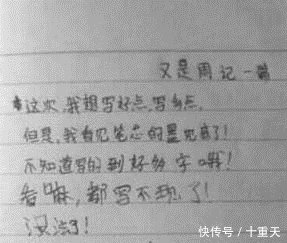 又是周记一篇
这次,我想写好点,写多点,
但是,我看见笔芯的墨见底了!
不知道写的到好多字哦!
看嘛,都写不现了!
没汤了!
快传号/十重天